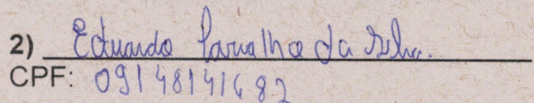 2) Eduardo Carvalho da Silva.
CPF: 09148141682